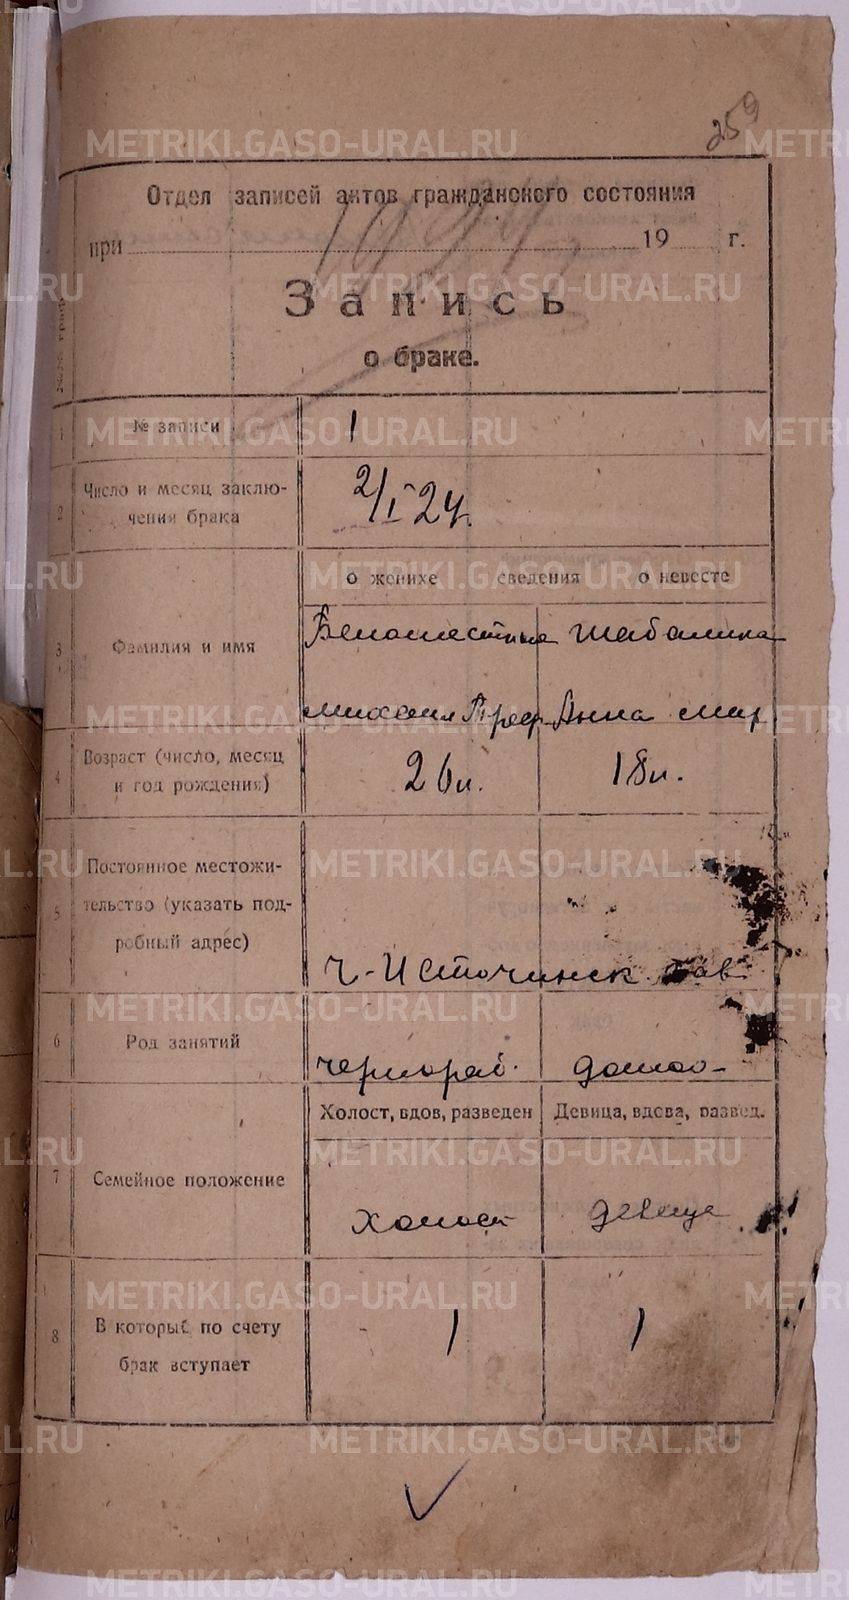 259
Отдел записей актов гражданского состояния
1924
при 19 г.
Запись
о браке.
1 № записи 1
2 Число и месяц заключения брака 2/I 24
о женихе сведения о невесте
3 Фамилия и имя
Белошейкина Шабалина
Михаил Треф. Анна Мар.
4 Возраст (число, месяц
и год рождения)
26 л. 18 л.
5 Постоянное местожи-
тельство (указать под-
робный адрес)
Ч-Источинск. зав
6 Род занятий
чернораб. домаш-
Холост, вдов, разведен Девица, вдова, развед.
7 Семейное положение
холост девица
8 В который по счету
брак вступает
1 1
METRIKI.GASO-URAL.RU